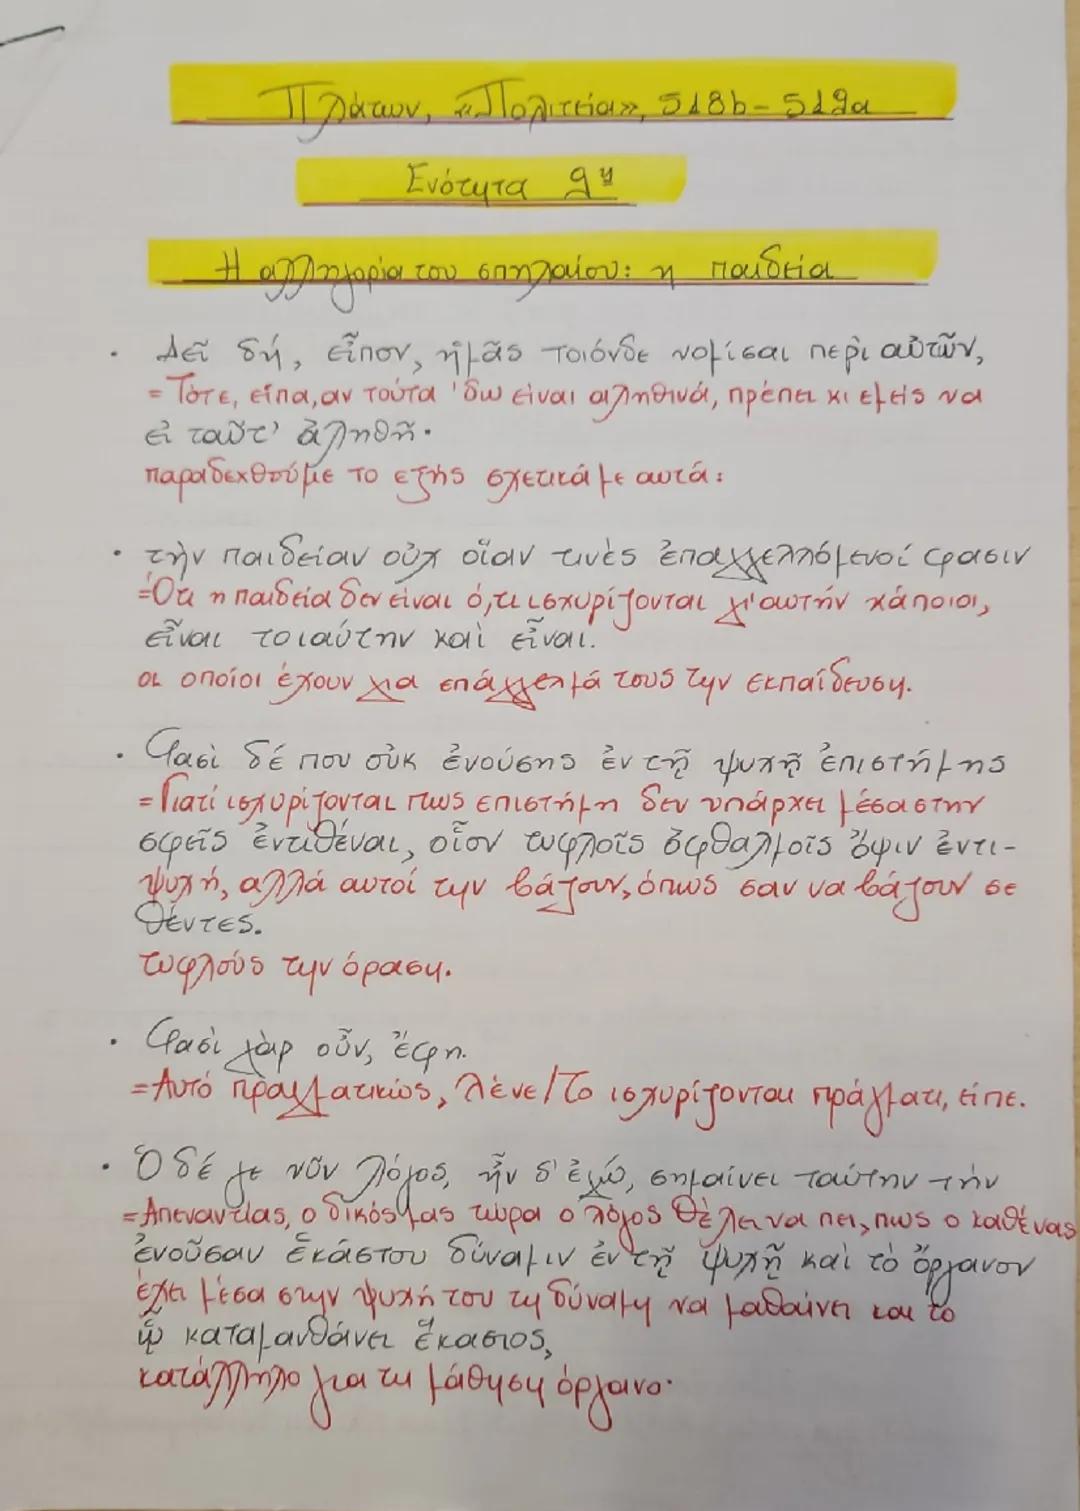 Πλάτων, «Πολιτεία», 518b-519a
Ενότητα 9η
Η αλληγορία του σπηλαίου: η παιδεία
· Δεῖ δή, εἶπον, ἡμᾶς τοιόνδε νομίσαι περὶ αὐτῶν,
= Τότε, είπα, αν τούτα 'δω είναι αληθινά, πρέπει κι εμείς να
εἰ ταῦτ' ἀληθῆ·
παραδεχθούμε το εξής σχετικά με αυτά:
· τὴν παιδείαν οὐχ οἵαν τινὲς ἐπαγγελλόμενοί φασιν
=Ότι η παιδεία δεν είναι ό,τι ισχυρίζονται γι'αυτήν κάποιοι,
εἶναι τοιαύτην καὶ εἶναι.
οι οποίοι έχουν για επάγγελμά τους την εκπαίδευση.
· Φασὶ δέ που οὐκ ἐνούσης ἐν τῇ ψυχῇ ἐπιστήμης
= Γιατί ισχυρίζονται πως επιστήμη δεν υπάρχει μέσα στην
σφεῖς ἐντιθέναι, οἷον τυφλοῖς ὀφθαλμοῖς ὄψιν ἐντι-
ψυχή, αλλά αυτοί την βάζουν, όπως σαν να βάζουν σε
θέντες.
τυφλούς την όραση.
· Φασὶ γὰρ οὖν, ἔφη.
=Αυτό πραγματικώς, λένε/Το ισχυρίζονται πράγματι, είπε.
· Ὁ δέ γε νῦν λόγος, ἦν δ' ἐγώ, σημαίνει ταύτην τὴν
=Απεναντίας, ο δικός μας τώρα ο λόγος θέλει να πει, πως ο καθένας
ἐνοῦσαν ἑκάστου δύναμιν ἐν τῇ ψυχῇ καὶ τὸ ὄργανον
έχει μέσα στην ψυχή του τη δύναμη να μαθαίνει και το
ᾧ καταμανθάνει ἕκαστος,
κατάλληλο για τη μάθηση όργανο·